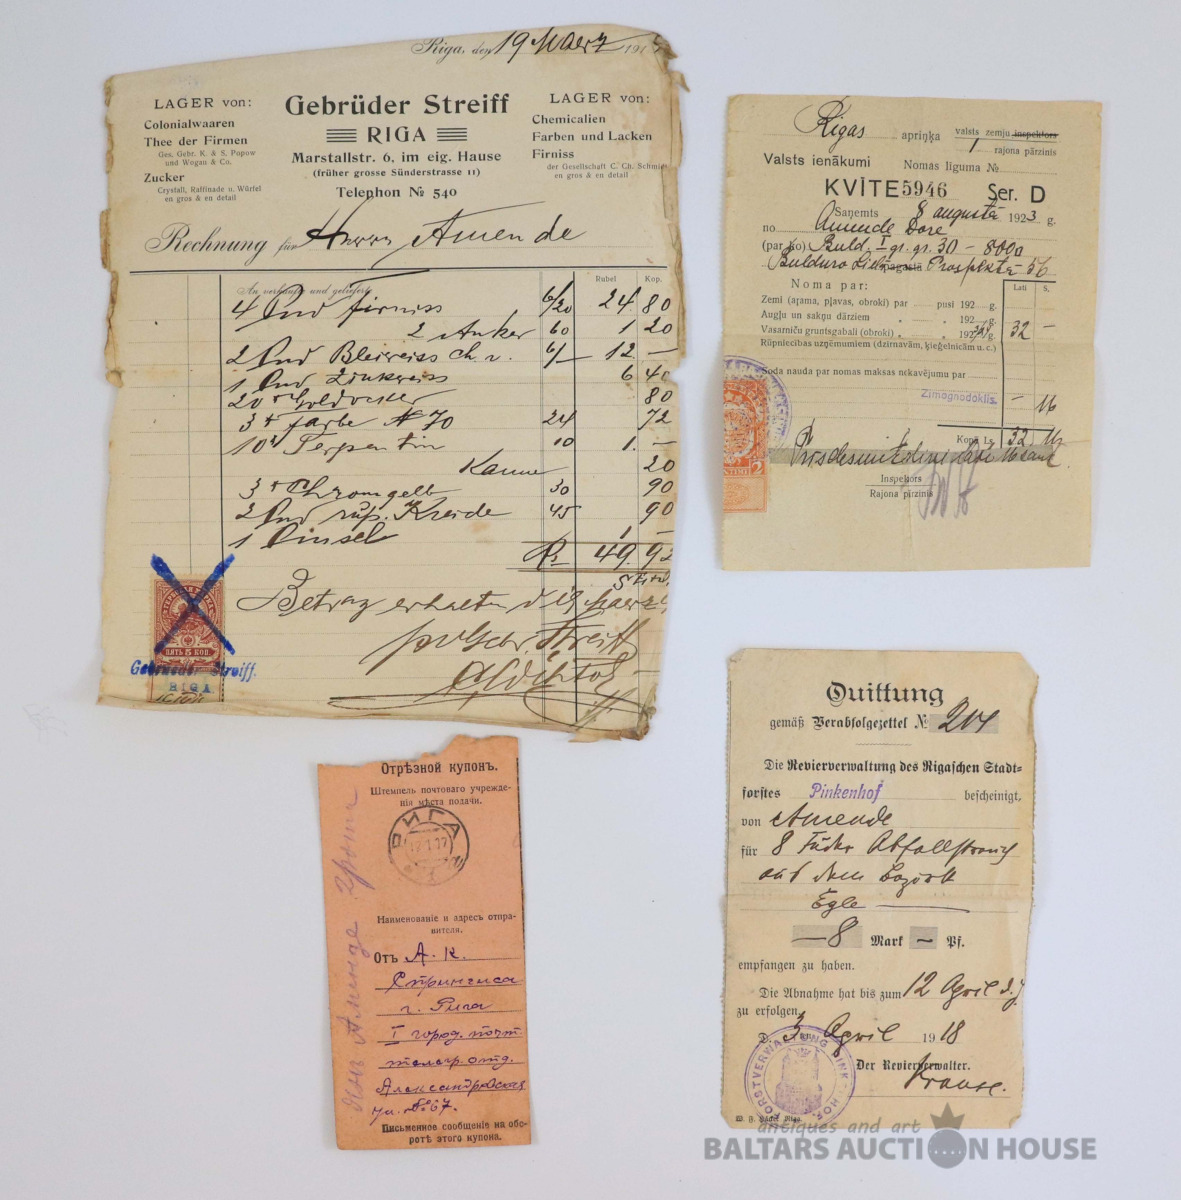 Riga, den 19 Maerz 191
LAGER von:
Colonialwaaren
Thee der Firmen
Ges. Gebr. K. & S. Popow
und Wogau & Co.
Zucker
Crystall, Raffinade u. Würfel
en gros & en detail
Gebrüder Streiff
RIGA
Marstallstr. 6, im eig. Hause
(früher grosse Sünderstrasse 11)
Telephon № 540
LAGER von:
Chemicalien
Farben und Lacken
Firniss
der Gesellschaft C. Ch. Schmidt
en gros & en detail
Rechnung für Herrn Amende
An verkaufte und gelieferte Rubel Kop.
4 Pud Firniss 6/20 24. 80
2 Anker 60 1 20
2 Pud Bleiweiss 6/– 12 –
1 Pud Zinkweiss 6 40
20 Goldocker 80
3 Farbe № 70 24 72
10 Terpentin 10 1. –
Kanne 20
3 Chromgelb 30 90
2 Pud Kreide 45 90
1 Pinsel 1 –
R 49. 92
Betrag erhalten d 19 Maerz
Streiff
ПЯТЬ 5 КОП.
Gebrueder Streiff.
RIGA
Rigas apriņķa valsts zemju inspektors
1 rajona pārzinis
Valsts ienākumi Nomas līguma №
KVĪTE 5946 Ser. D
Saņemts 8 augustā 1923 g.
no Amende Dore
(par ko) Buld. I gr. gr. 30 – 8000
Bulduro pagastā Prospektā 56
Noma par: Lati S.
Zemi (aŗama, pļavas, obroki) par pusi 192 g.
Augļu un sakņu dārziem „ „ 192 g.
Vasarnīcu gruntsgabali (obroki) „ 192 g. 32 –
Rūpniecības uzņēmumiem (dzirnavām, ķieģelnīcām u. c.)
Soda nauda par nomas maksas nekavējumu par
Zīmognodoklis. – 16
Kopā Ls. 32 16
Inspektors
Rajona pārzinis
Отрѣзной купонъ.
Штемпель почтоваго учрежде-
нія мѣста подачи.
РИГА
Наименованіе и адресъ отпра-
вителя.
Отъ А. К.
Спрингиса
г. Рига
I город. почт.
телегр. отд.
Александровская
ул. № 67.
Письменное сообщеніе на обо-
ротѣ этого купона.
Quittung
gemäß Verabfolgezettel № 204
Die Revierverwaltung des Rigaschen Stadt-
forstes Pinkenhof bescheinigt,
von Amende
für 8 Fuder Abfallstrauch
aus dem Bezirk
Egle
– 8 Mark – Pf.
empfangen zu haben.
Die Abnahme hat bis zum 12 April d. J.
zu erfolgen.
D. 3 April 1918
Der Revierverwalter.
Krause.
FORSTVERWALTUNG PINKENHOF
antiques and art
BALTARS AUCTION HOUSE